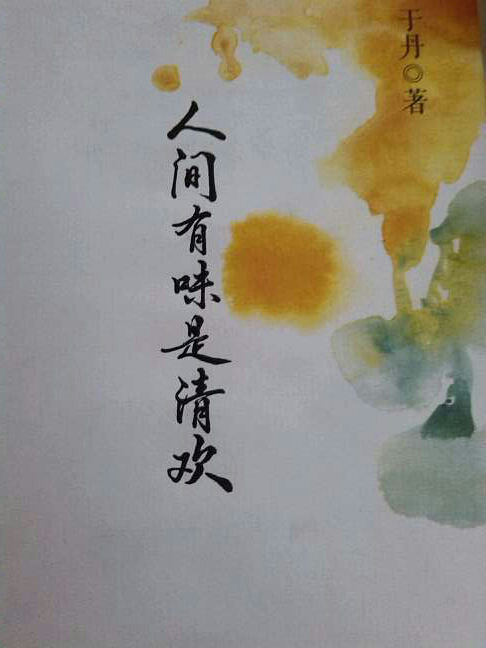 于丹◎著
人间有味是清欢